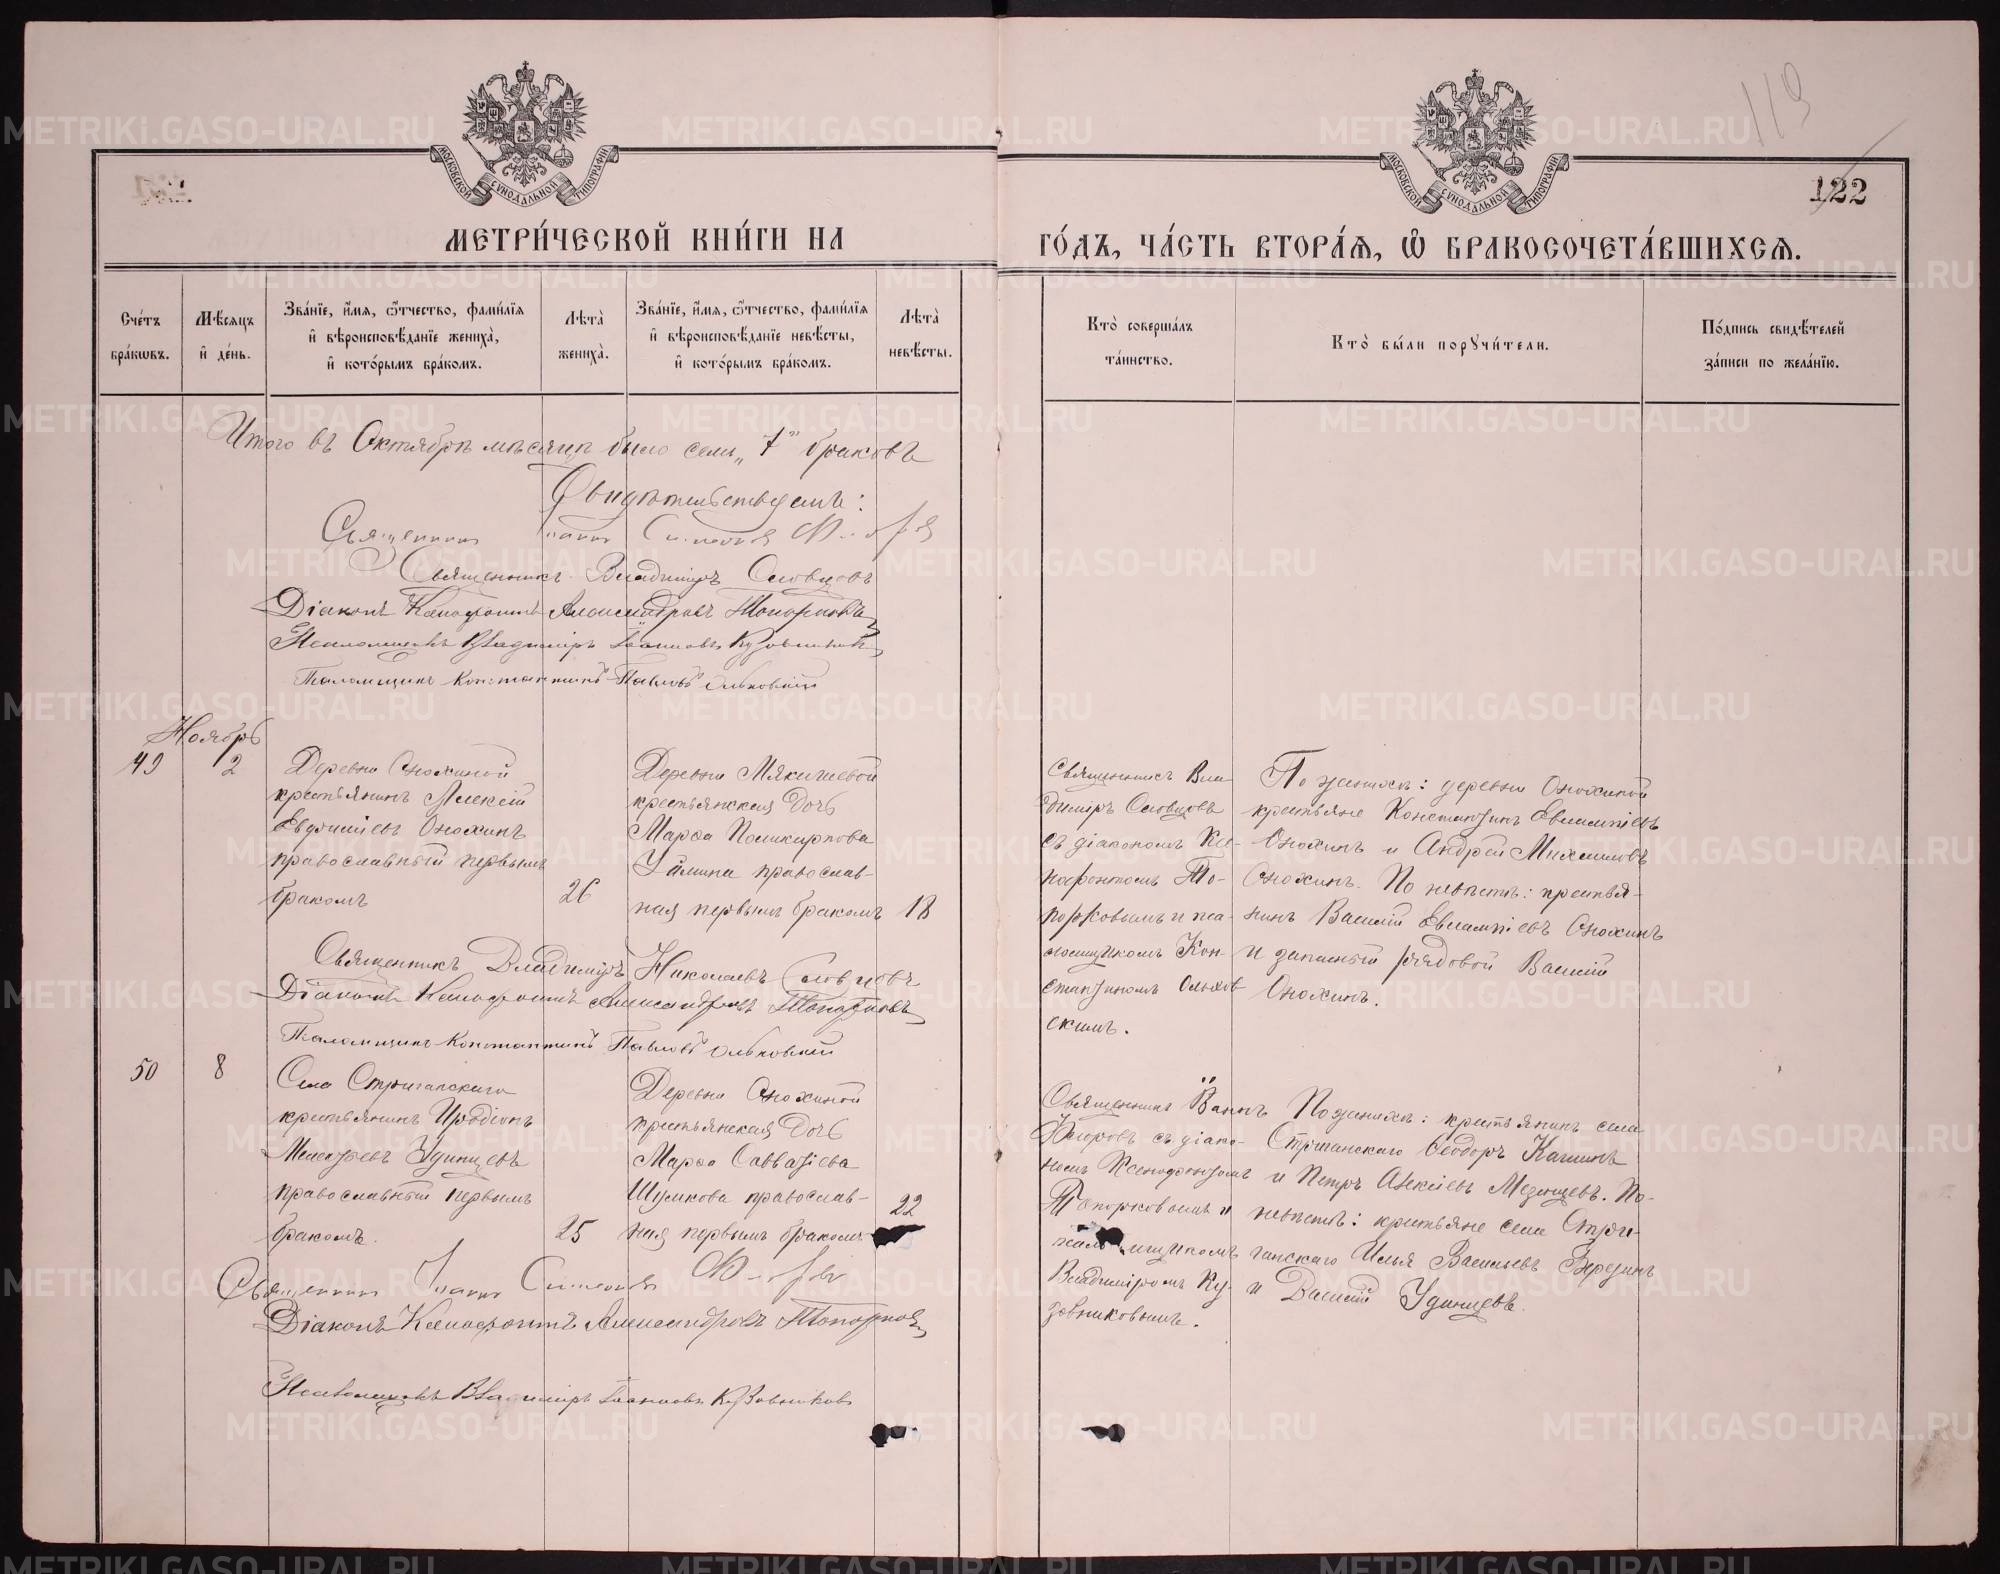 119
122
МОСКОВСКОЙ СѴНОДАЛЬНОЙ ТИПОГРАФІИ
МОСКОВСКОЙ СѴНОДАЛЬНОЙ ТИПОГРАФІИ
МЕТРИ́ЧЕСКОЙ КНИ́ГИ НА
ГО́ДЪ, ЧА́СТЬ ВТОРА́Ѧ, Ѽ БРАКОСОЧЕТА́ВШИХСѦ.
Сче́тъ бра́кѡвъ.
Мѣ́сяцъ и҆ де́нь.
Зва́нїе, и҆́мѧ, ѻ҆́тчество, фами́лїѧ и҆ вѣроисповѣ́данїе жениха̀, и҆ кото́рымъ бра́комъ.
Лѣта̀ жениха̀.
Зва́нїе, и҆́мѧ, ѻ҆́тчество, фами́лїѧ и҆ вѣроисповѣ́данїе невѣ́сты, и҆ кото́рымъ бра́комъ.
Лѣта̀ невѣ́сты.
Кто̀ соверша́лъ та́инство.
Кто̀ бы́ли порꙋчи́тели.
По́дпись свидѣ́телей за́писи по жела́нїю.
Итого въ Октябрѣ мѣсяцѣ было семь „7" браковъ
Свидѣтельствуемъ:
Священникъ Іоаннъ Симеоновъ
Священникъ Владиміръ Словцовъ
Діаконъ Ксенофонтъ Александровъ Топорковъ
Псаломщикъ Владиміръ Іоанновъ Кузовниковъ
Псаломщикъ Константинъ Павловъ Ольховскій
Ноябрь
49
2
Деревни Снохиной
крестьянинъ Алексій
Евфиміевъ Снохинъ
православный первымъ
бракомъ
26
Деревни Мякишевой
крестьянская дочь
Марѳа Поликарпова
православ-
ная первымъ бракомъ
18
Священникъ Вла-
диміръ Словцовъ
съ діакономъ Ксе-
нофонтомъ То-
порковымъ и пса-
ломщикомъ Кон-
стантиномъ Ольхов
скимъ.
По женихѣ: деревни Снохиной
крестьяне Константинъ Евлампіевъ
Снохинъ и Андрей Михаиловъ
Снохинъ. По невѣстѣ: крестья-
нинъ Василій Евлампіевъ Снохинъ
и запасный рядовой Василій
Снохинъ.
Священникъ Владиміръ Николаевъ Словцовъ
Діаконъ Ксенофонтъ Александровъ Топорковъ
Псаломщикъ Константинъ Павловъ Ольховскій
50
8
Села Стриганскаго
крестьянинъ Иродіонъ
Мелетьевъ Удинцевъ
православный первымъ
бракомъ.
25
Деревни Снохиной
крестьянская дочь
Марѳа Савватіева
Шумкова православ-
ная первымъ бракомъ
22
Священникъ Іоаннъ
съ діако-
номъ Ксенофонтомъ
Топорковымъ и
псаломщикомъ
Владиміромъ Ку-
зовниковымъ.
По женихѣ: крестьянинъ села
Стриганскаго Ѳеодоръ
и Петръ Алексіевъ Мезенцевъ. По
невѣстѣ: крестьяне села Стри-
ганскаго Илья Васильевъ Березинъ
и Василій Удинцевъ.
Священникъ Іоаннъ Симеоновъ
Діаконъ Ксенофонтъ Александровъ Топорковъ
Псаломщикъ Владиміръ Іоанновъ Кузовниковъ
METRIKI.GASO-URAL.RU